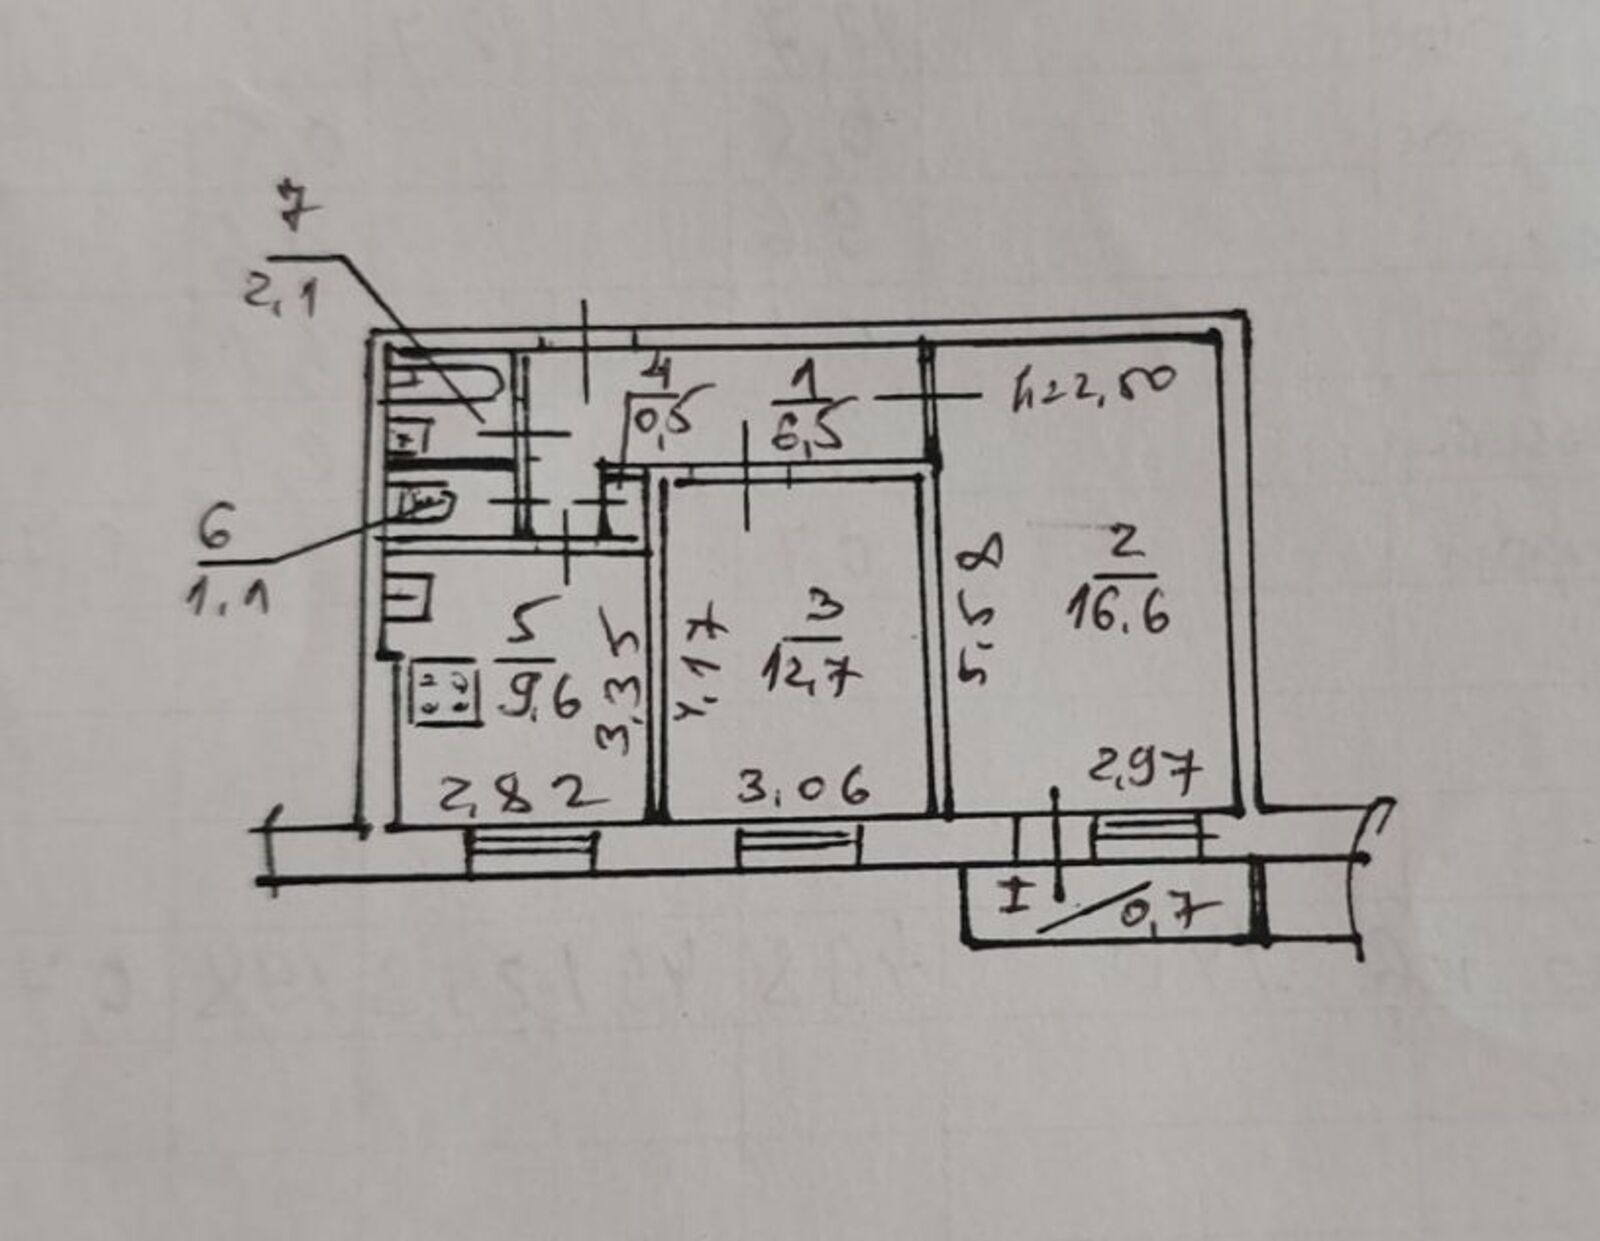 7
2,1
4
0,5
1
6,5
h=2,50
6
1,1
5
9,6
3,35
2,82
4.17
3
12,7
3,06
5.58
2
16.6
2,97
I
0,7